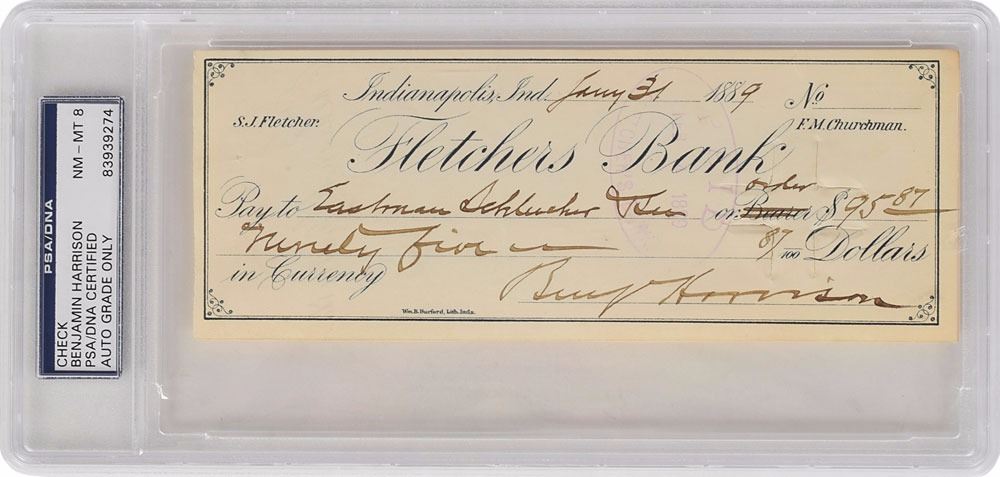 PSA/DNA
CHECK NM - MT 8
BENJAMIN HARRISON
PSA/DNA CERTIFIED 83939274
AUTO GRADE ONLY
Indianapolis, Ind. Jany 31 1889 No
S.J. Fletcher. F.M. Churchman.
Fletchers Bank
order
Pay to Eastman Schleicher & Lee or Bearer $ 95 87
Ninety five 87/100 Dollars
in Currency
Benj Harrison
Wm. B. Burford, Lith. Indls.